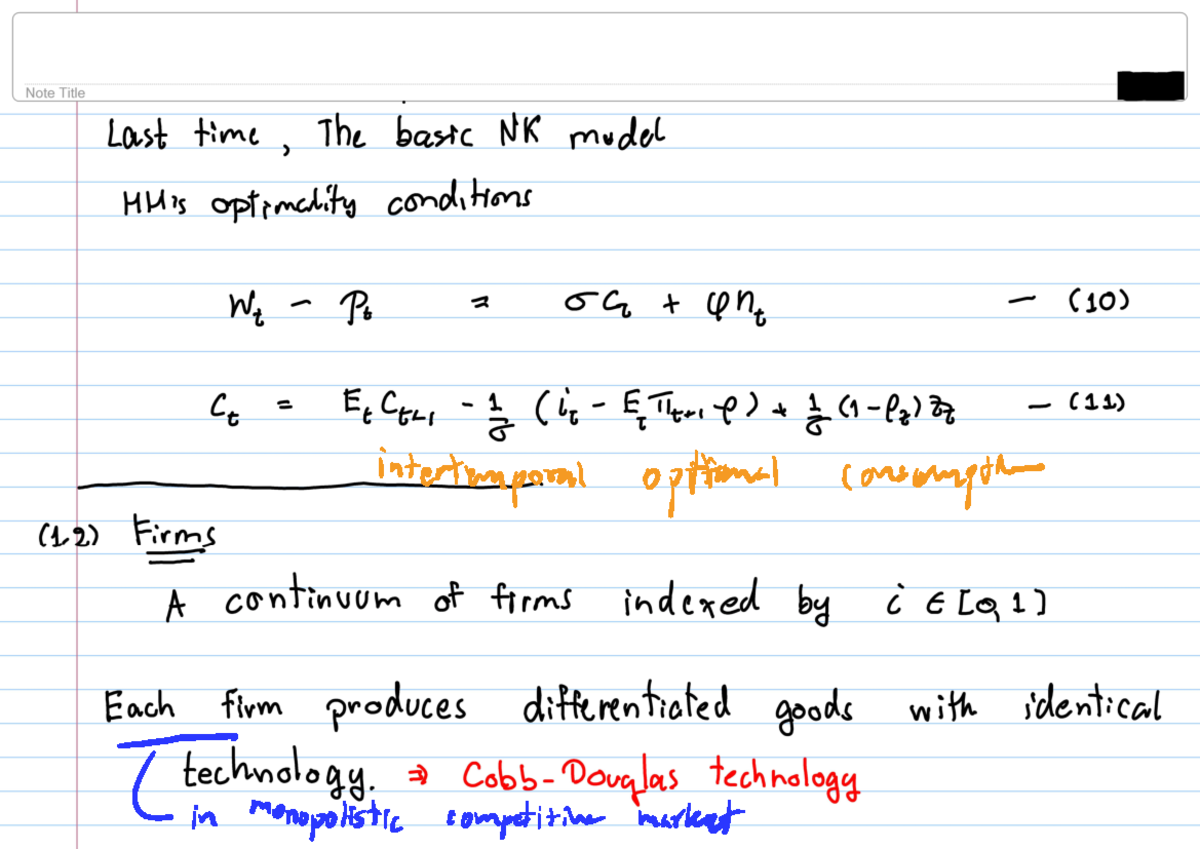 Note Title
Last time, The basic NK model
HH's optimality conditions
w_t - p_t = σc_t + φn_t — (10)
c_t = E_t c_{t+1} - 1/σ (i_t - E_t π_{t+1} - ρ) + 1/σ (1-ρ_z) z_t — (11)
intertemporal optimal consumption
(1.2) Firms
A continuum of firms indexed by i ∈ [0,1]
Each firm produces differentiated goods with identical
technology. ⇒ Cobb-Douglas technology
in monopolistic competitive market